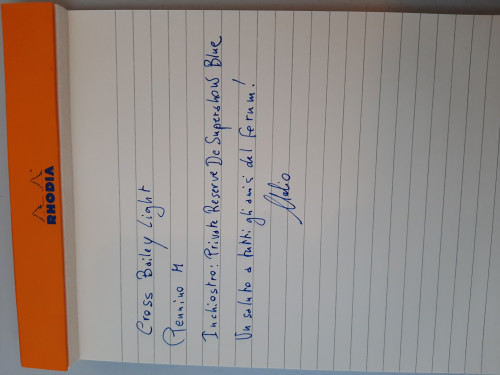 RHODIA
Cross Bailey Light
Pennino M
Inchiostro: Private Reserve Dc Supershow Blue
Un saluto a tutti gli amici del forum!